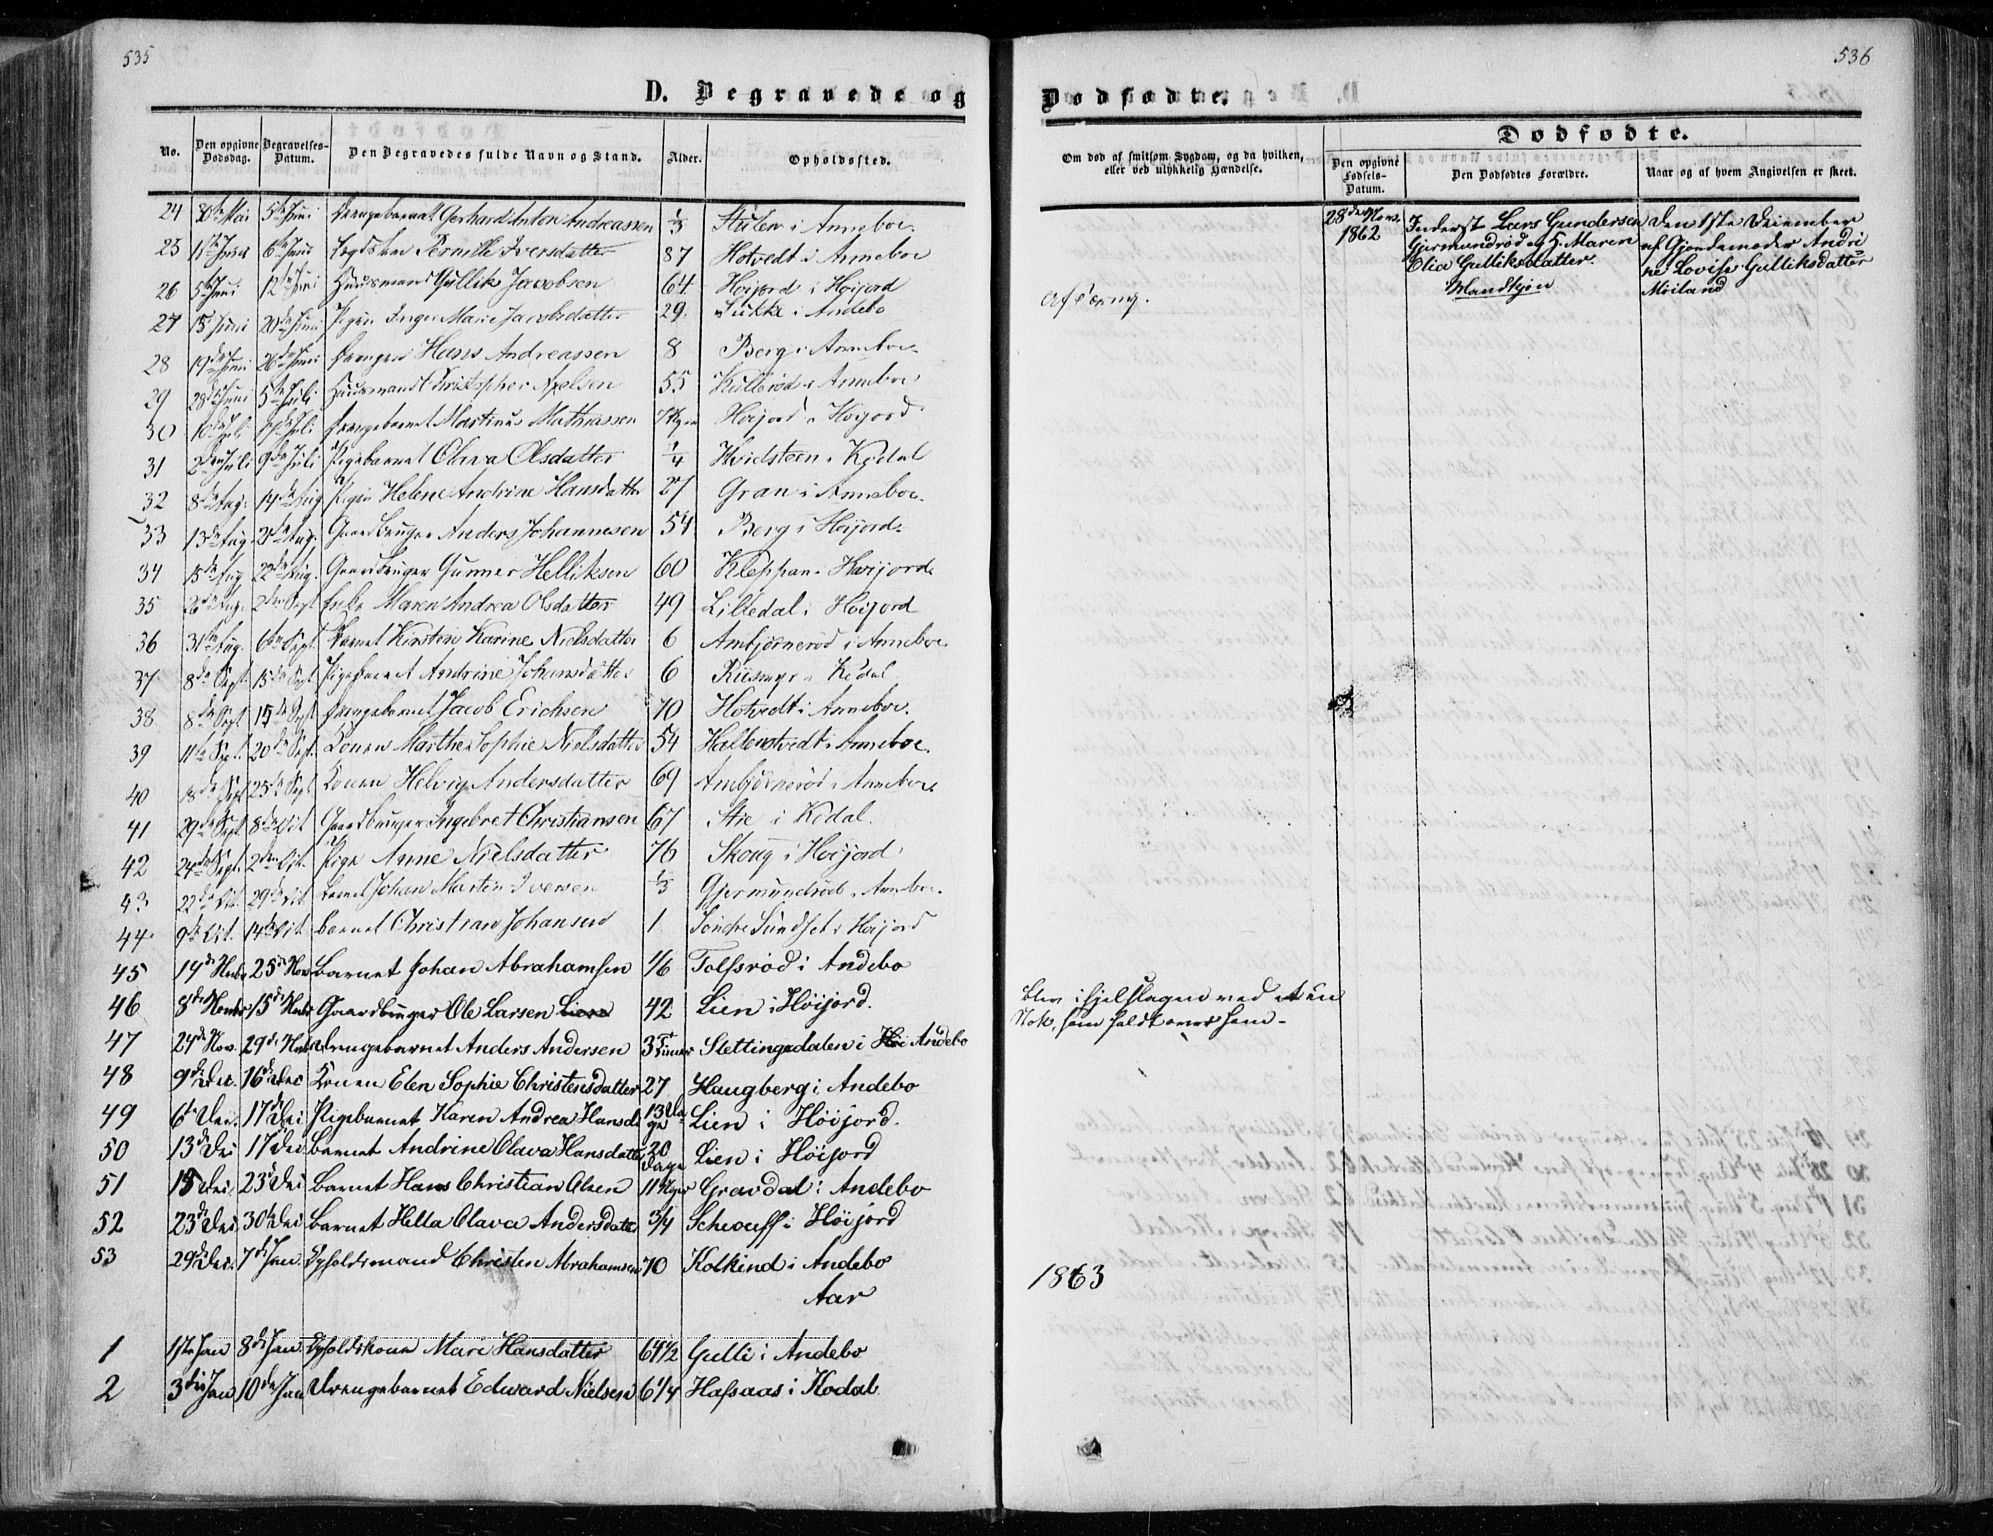 535
D. Begravede og
No. Den opgivne Dødsdag. Begravelses-Datum. Den Begravedes fulde Navn og Stand. Alder. Opholdssted.
24 30te Mai 5te Juni Drengebarnet Gerhard Anton Andreassen 1/3 i Anneboe
25 6te Juni Pernille Iversdatter 87 Hotvedt i Anneboe
26 5te Juni 12te Juni Huusmand Gullik Jacobsen 64 Høijord i Høijord
27 15 Juni 20de Juni Pigen Inger Marie Jacobsdatter 29. i Andebo
28 19de Juni 26de Juni Drengen Hans Andreassen 8 Berg i Anneboe
29 28de Juni 5te Juli Huusmand Christopher Axelsen 55 i Anneboe
30 Juli Juli Drengebarnet Martinus Mathiassen 7 Uger Høijord i Høijord
31 2den Juli 9de Juli Pigebarnet Olava Olsdatter 1/4 Hvidsteen i Kodal
32 8de Aug. 14de Aug Pigen Helene Andrine Hansdatter 27 Gran i Anneboe.
33 13de Aug. Aug. Gaardbruger Anders Johannesen 54 Berg i Høijord.
34 15de Aug 22de Aug. Gaardbruger Gunner Helliksen 60 Kleppan i Høijord.
35 26de Aug. 2den Sept Enke Maren Andrea Olsdatter 49 Lilledal i Høijord
36 31te Aug. 6te Sept. Barnet Kirstine Karine Nielsdatter 6 Ambjørnerød i Anneboe.
37 8de Sept 15de Sept. Pigebarnet Andrine Johansdatter 6 Riismyr i Kodal
38 8de Sept 15de Sept Drengebarnet Jacob Erichsen 70 Hotvedt i Anneboe.
39 11te Sept. 20de Sept. Konen Marthe Sophie Nielsdatter 54 Hallenstvedt i Anneboe.
40 18de Sept 25de Sept Konen Helvig Andersdatter 69 Ambjørnerød i Anneboe
41 29de Sept. 8de Oct Gaardbruger Ingebret Christiansen 67 i Kodal.
42 24de Sept. 2den Oct. Pige Anne Nielsdatter 76 Skoug i Høijord
43 22de Oct. 29de Oct Barnet Johan Martin Iversen 1/3 Gjermundrød i Anneboe.
44 9de Oct. 14de Oct. Barnet Christian Johansen 1 Søndre Sundset i Høijord
45 14de Nvbr 25de Nov. Barnet Johan Abrahamsen 1/6 Tolfsrød i Andebo
46 8de Novbr 15de Nvbr Gaardbruger Ole Larsen Lien 42 Lien i Høijord.
47 24de Nov. 29de Nvbr Drengebarnet Anders Andersen 3 Timer Slettingsdalen i Høi Andebo
48 9de Dec. 16de Dec Konen Elen Sophie Christensdatter 27 Haugberg i Andebo
49 6te Dec. 17de Dec Pigebarnet Karen Andrea Hansd 13 Dage Lien i Høijord.
50 13de Dec 17 Dec Barnet Andrine Olava Hansdatter 20 Dage Lien i Høijord
51 15 Dec. 23de Dec Barnet Hans Christian Olsen 11 Uger Gravdal i Andebo
52 23de Dec 30te Dec Barnet Hella Olava Andersdatter 3/4 Schouff i Høijord
53 29de Dec. 7de Jan. Opholdsmand Christen Abrahamsen 70 Kolkind i Andebo
Aar
1 1ste Jan 8de Jan. Opholdskone Mari Hansdatter 64 1/2 Gulli i Andebo
2 3die Jan 10de Jan Drengebarnet Edward Nielsen 6 1/4 Hafsaas i Kodal
536
Dødfødte.
Om død af smitsom Sygdom, og da hvilken,
eller ved ulykkelig Hændelse.
Dødfødte.
Den opgivne Fødsels-Datum. Den Dødfødtes Forældre. Naar og af hvem Angivelsen er skeet.
28de Nov. Inderst Lars Gundersen Den 1ste December
1862 Gjermundrød og H. Maren af Gjordemoder Andri
Elia Gulliksdatter. ne Lovise Gulliksdatter
Mandkjøn Møiland
Af Tæring.
Blev ihjelslagen ved at en
Stok, som faldt over ham.
1863